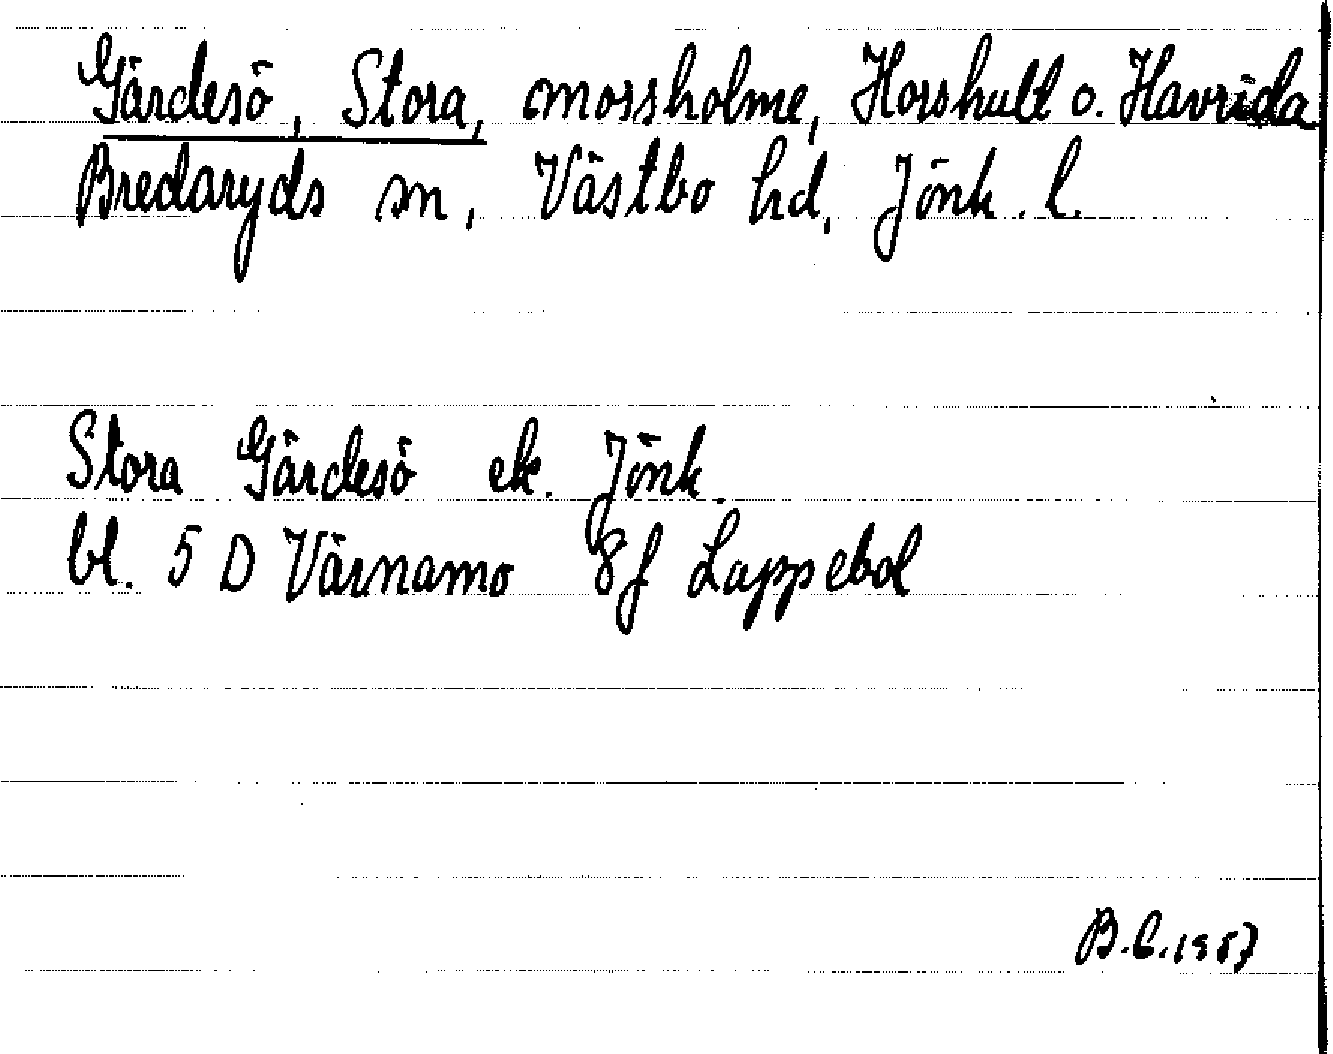 Gärdesö, Stora, mossholme, Horshult o. Havrida
Bredaryds sn, Västbo hd, Jönk. l.
Stora Gärdesö ek. Jönk.
bl. 5 D Värnamo 8f Lappebol
B.C. 1957